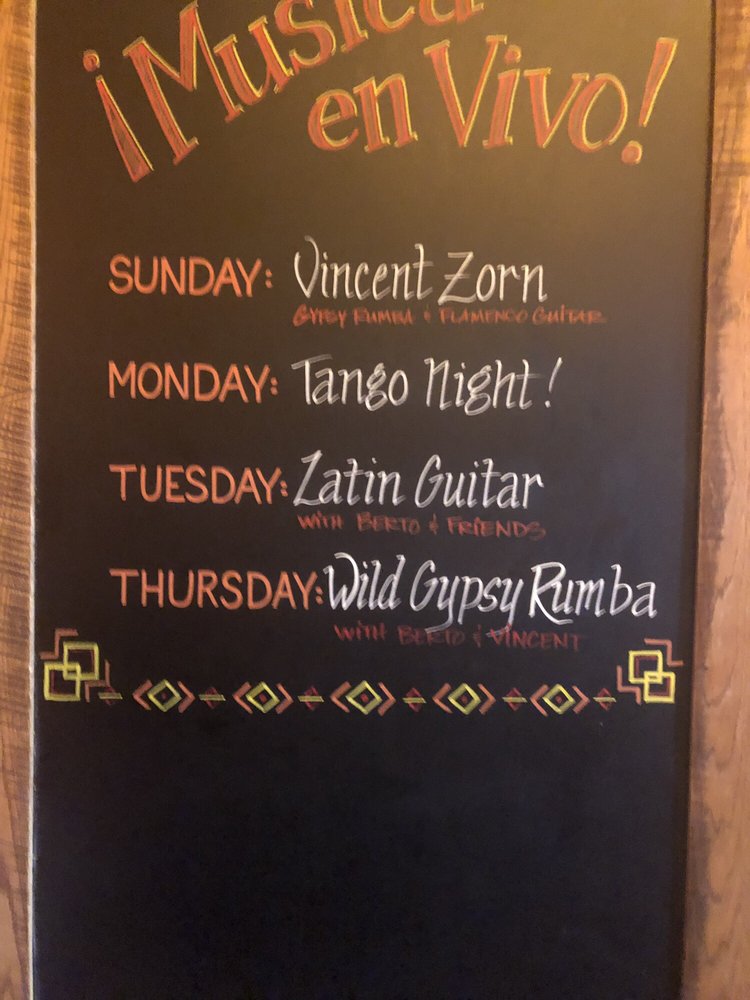 ¡Musica
en Vivo!
SUNDAY: Vincent Zorn
GYPSY RUMBA & FLAMENCO GUITAR
MONDAY: Tango Night!
TUESDAY: Latin Guitar
WITH BERTO & FRIENDS
THURSDAY: Wild Gypsy Rumba
WITH BERTO & VINCENT